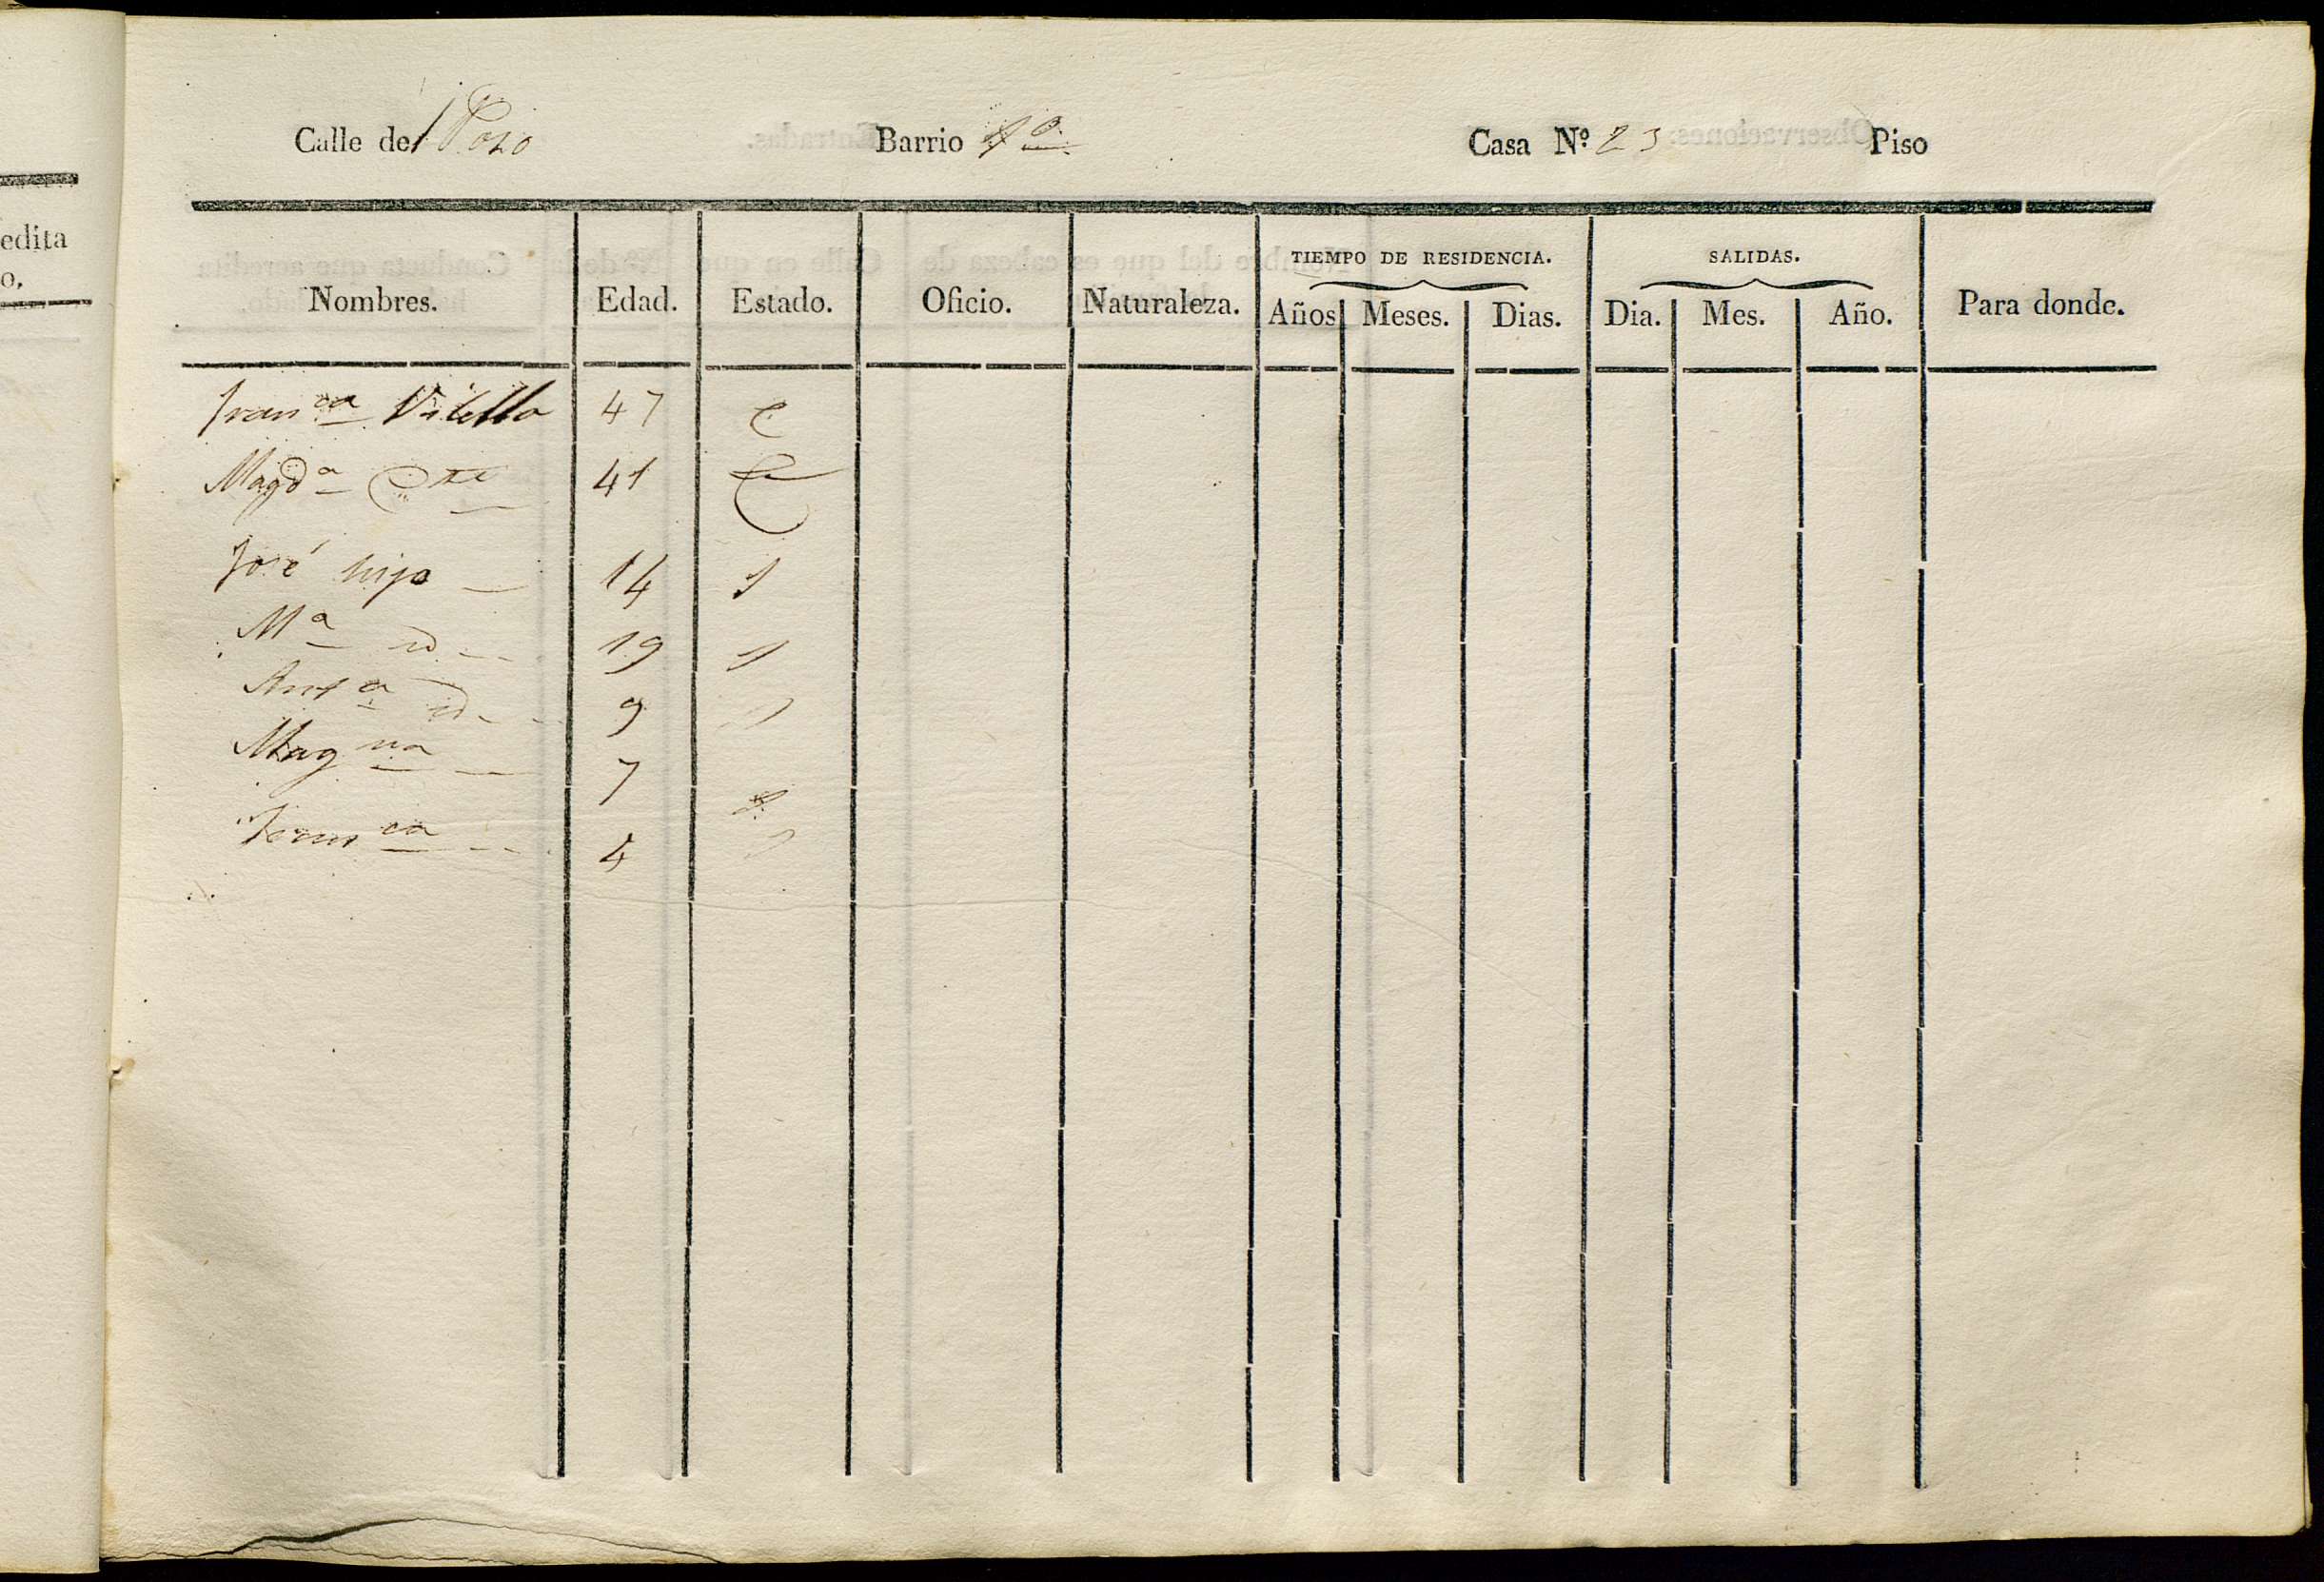 edita
o.
Calle del Pozo Barrio 1º Casa Nº 23 Piso
Nombres. Edad. Estado. Oficio. Naturaleza. TIEMPO DE RESIDENCIA. SALIDAS. Para donde.
Años Meses. Dias. Dia. Mes. Año.
Franca Vilella 47 C
Magda 41 C
José hijo 14 S
Ma id 19 S
Anta id 9 S
Magna 7 S
Franca 4 S